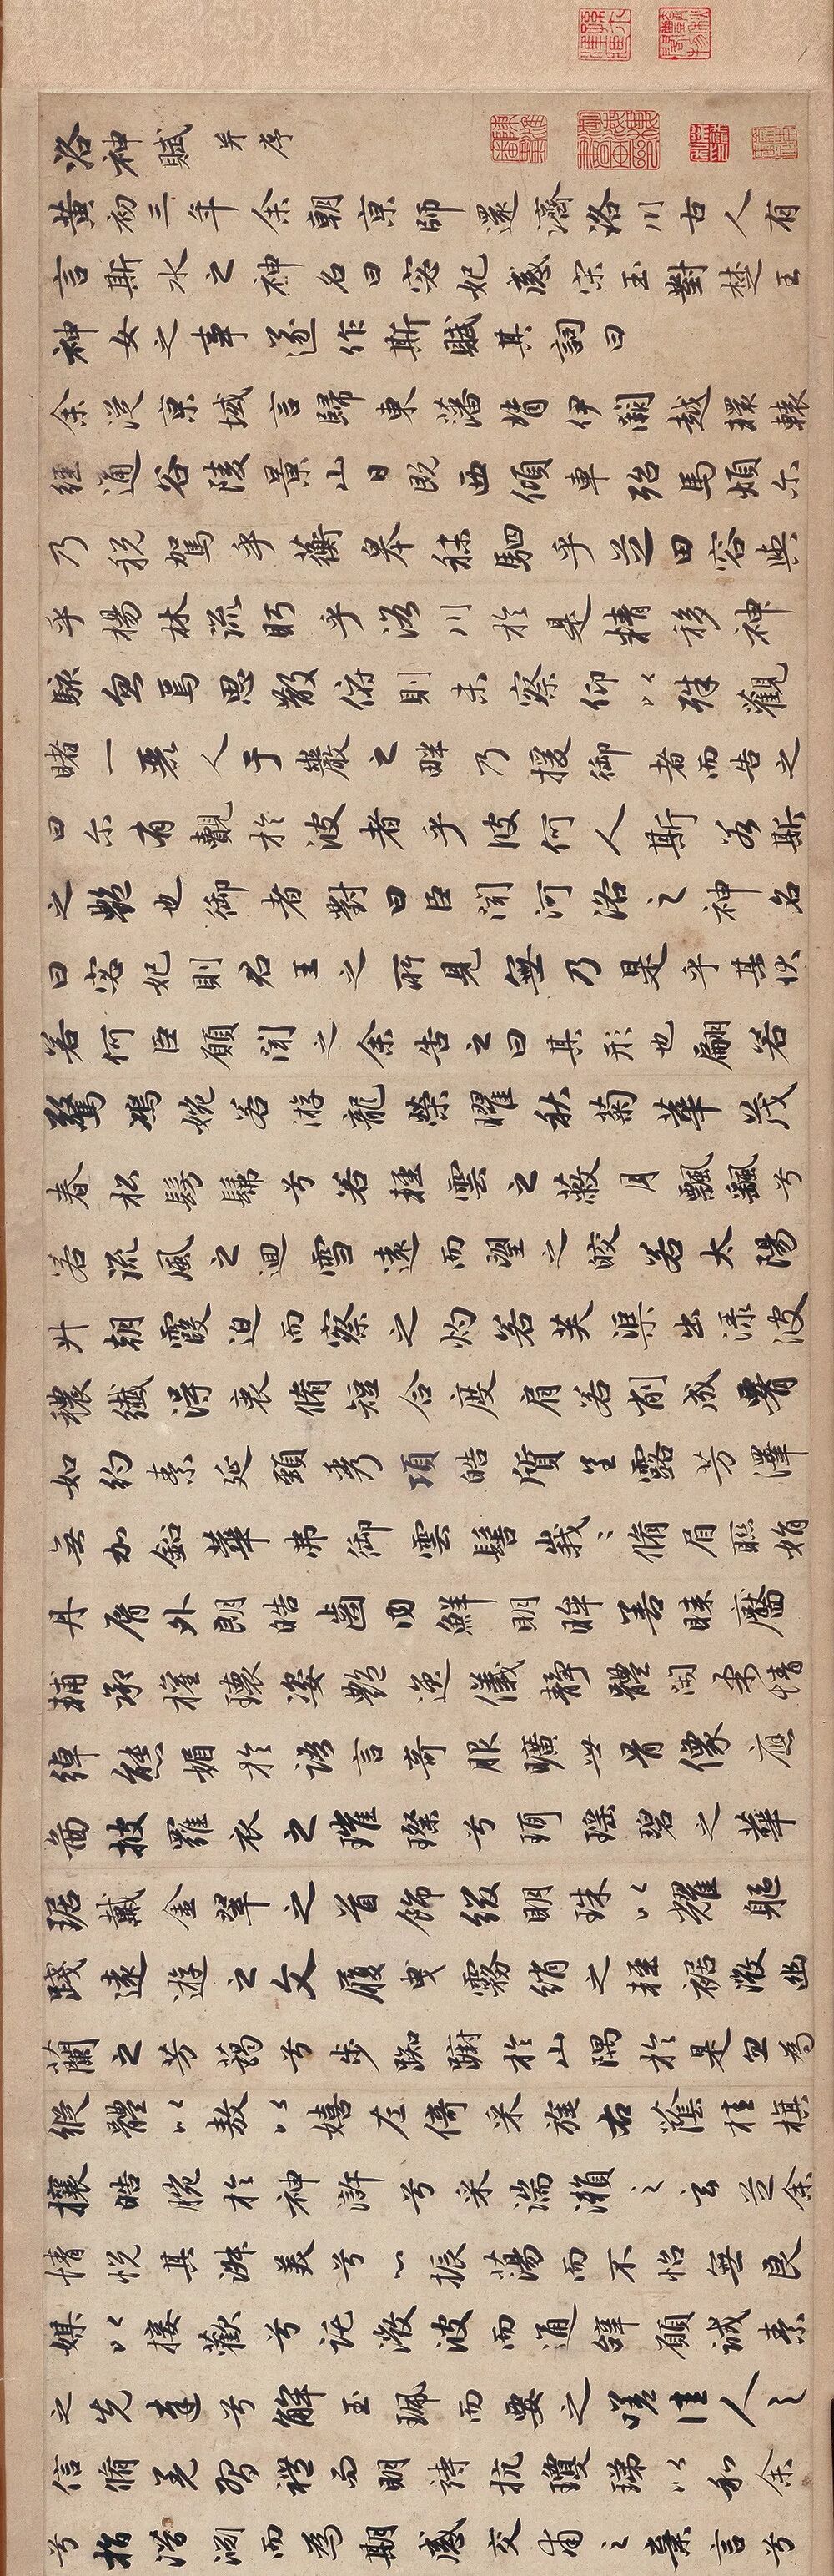 洛神賦并序
黃初三年余朝京師還濟洛川古人有
言斯水之神名曰宓妃感宋玉對楚王
神女之事遂作斯賦其詞曰
余從京域言歸東藩背伊闕越轘轅
經通谷陵景山日既西傾車殆馬煩尔
乃税駕乎蘅皋秣駟乎芝田容與
乎楊林流眄乎洛川於是精移神
駭忽焉思散俯則未察仰以殊觀
睹一麗人于巖之畔乃援御者而告之
曰尔有覿於彼者乎彼何人斯若斯
之艶也御者對曰臣聞河洛之神名
曰宓妃則君王之所見無乃是乎其狀
若何臣願聞之余告之曰其形也翩若
驚鴻婉若游龍榮曜秋菊華茂
春松髣髴兮若輕雲之蔽月飄飖兮
若流風之迴雪遠而望之皎若太陽
升朝霞迫而察之灼若芙蕖出渌波
穠纖得衷脩短合度肩若削成署
如約素延頸秀項皓質呈露芳澤
無加鉛華弗御雲髻峩〻脩眉聯娟
丹脣外朗皓齒内鮮明眸善睞靨
輔承權瓌姿艶逸儀靜體閑柔情
綽態媚於語言奇服曠世骨像應
圖披羅衣之璀璨兮珥瑶碧之華
琚戴金翠之首飾綴明珠以耀軀
踐遠遊之文履曳霧綃之輕裾微幽
蘭之芳藹兮步踟蹰於山隅於是忽焉
縱體以敖以嬉左倚采旄右蔭桂旗
攘皓腕於神滸兮采湍瀨之玄芝余
情悦其淑美兮心振蕩而不怡無良
媒以接歡兮託微波而通辭願誠素
之先達兮解玉珮而要之嗟佳人之
信脩羌習禮而明詩抗瓊珶以和余
兮指潛淵而為期感交甫之棄言兮